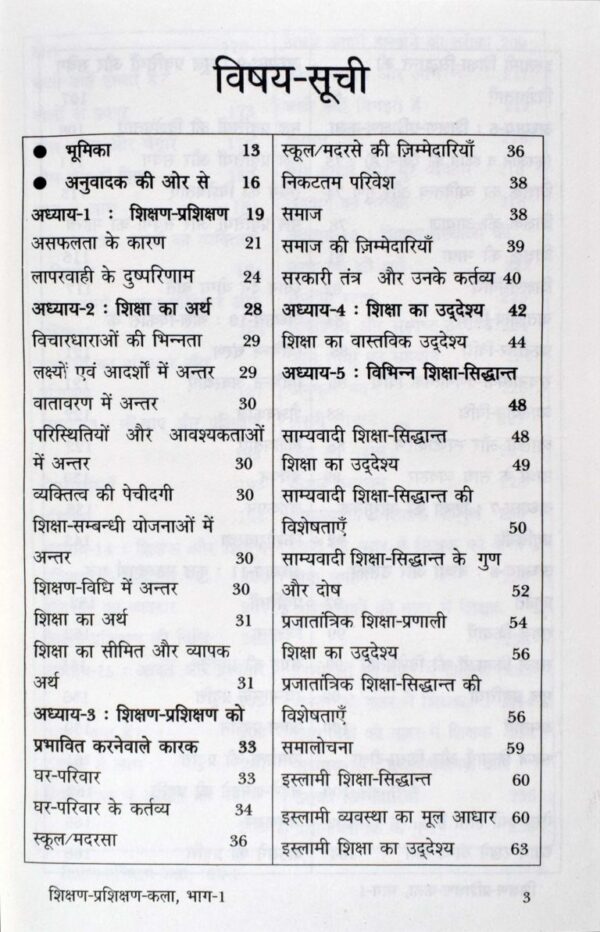 विषय-सूची
● भूमिका 13
● अनुवादक की ओर से 16
अध्याय-1 : शिक्षण-प्रशिक्षण 19
असफलता के कारण 21
लापरवाही के दुष्परिणाम 24
अध्याय-2 : शिक्षा का अर्थ 28
विचारधाराओं की भिन्नता 29
लक्ष्यों एवं आदर्शों में अन्तर 29
वातावरण में अन्तर 30
परिस्थितियों और आवश्यकताओं
में अन्तर 30
व्यक्तित्व की पेचीदगी 30
शिक्षा-सम्बन्धी योजनाओं में
अन्तर 30
शिक्षण-विधि में अन्तर 30
शिक्षा का अर्थ 31
शिक्षा का सीमित और व्यापक
अर्थ 31
अध्याय-3 : शिक्षण-प्रशिक्षण को
प्रभावित करनेवाले कारक 33
घर-परिवार 33
घर-परिवार के कर्तव्य 34
स्कूल/मदरसा 36
स्कूल/मदरसे की ज़िम्मेदारियाँ 36
निकटतम परिवेश 38
समाज 38
समाज की ज़िम्मेदारियाँ 39
सरकारी तंत्र और उनके कर्तव्य 40
अध्याय-4 : शिक्षा का उद्देश्य 42
शिक्षा का वास्तविक उद्देश्य 44
अध्याय-5 : विभिन्न शिक्षा-सिद्धान्त
48
साम्यवादी शिक्षा-सिद्धान्त 48
शिक्षा का उद्देश्य 49
साम्यवादी शिक्षा-सिद्धान्त की
विशेषताएँ 50
साम्यवादी शिक्षा-सिद्धान्त के गुण
और दोष 52
प्रजातांत्रिक शिक्षा-प्रणाली 54
शिक्षा का उद्देश्य 56
प्रजातांत्रिक शिक्षा-सिद्धान्त की
विशेषताएँ 56
समालोचना 59
इस्लामी शिक्षा-सिद्धान्त 60
इस्लामी व्यवस्था का मूल आधार 60
इस्लामी शिक्षा का उद्देश्य 63
शिक्षण-प्रशिक्षण-कला, भाग-1 3